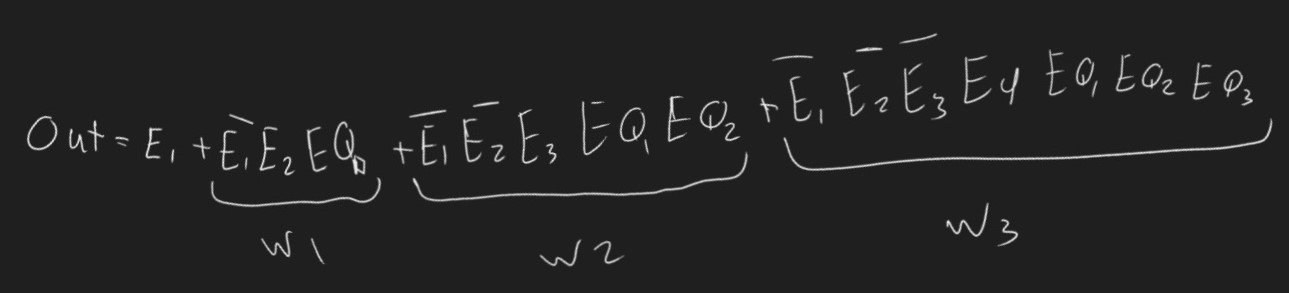 Out = E₁ + E̅₁ E₂ EQ₁ + E̅₁ E̅₂ E₃ EQ₁ EQ₂ + E̅₁ E̅₂ E̅₃ E₄ EQ₁ EQ₂ EQ₃
W1 W2 W3